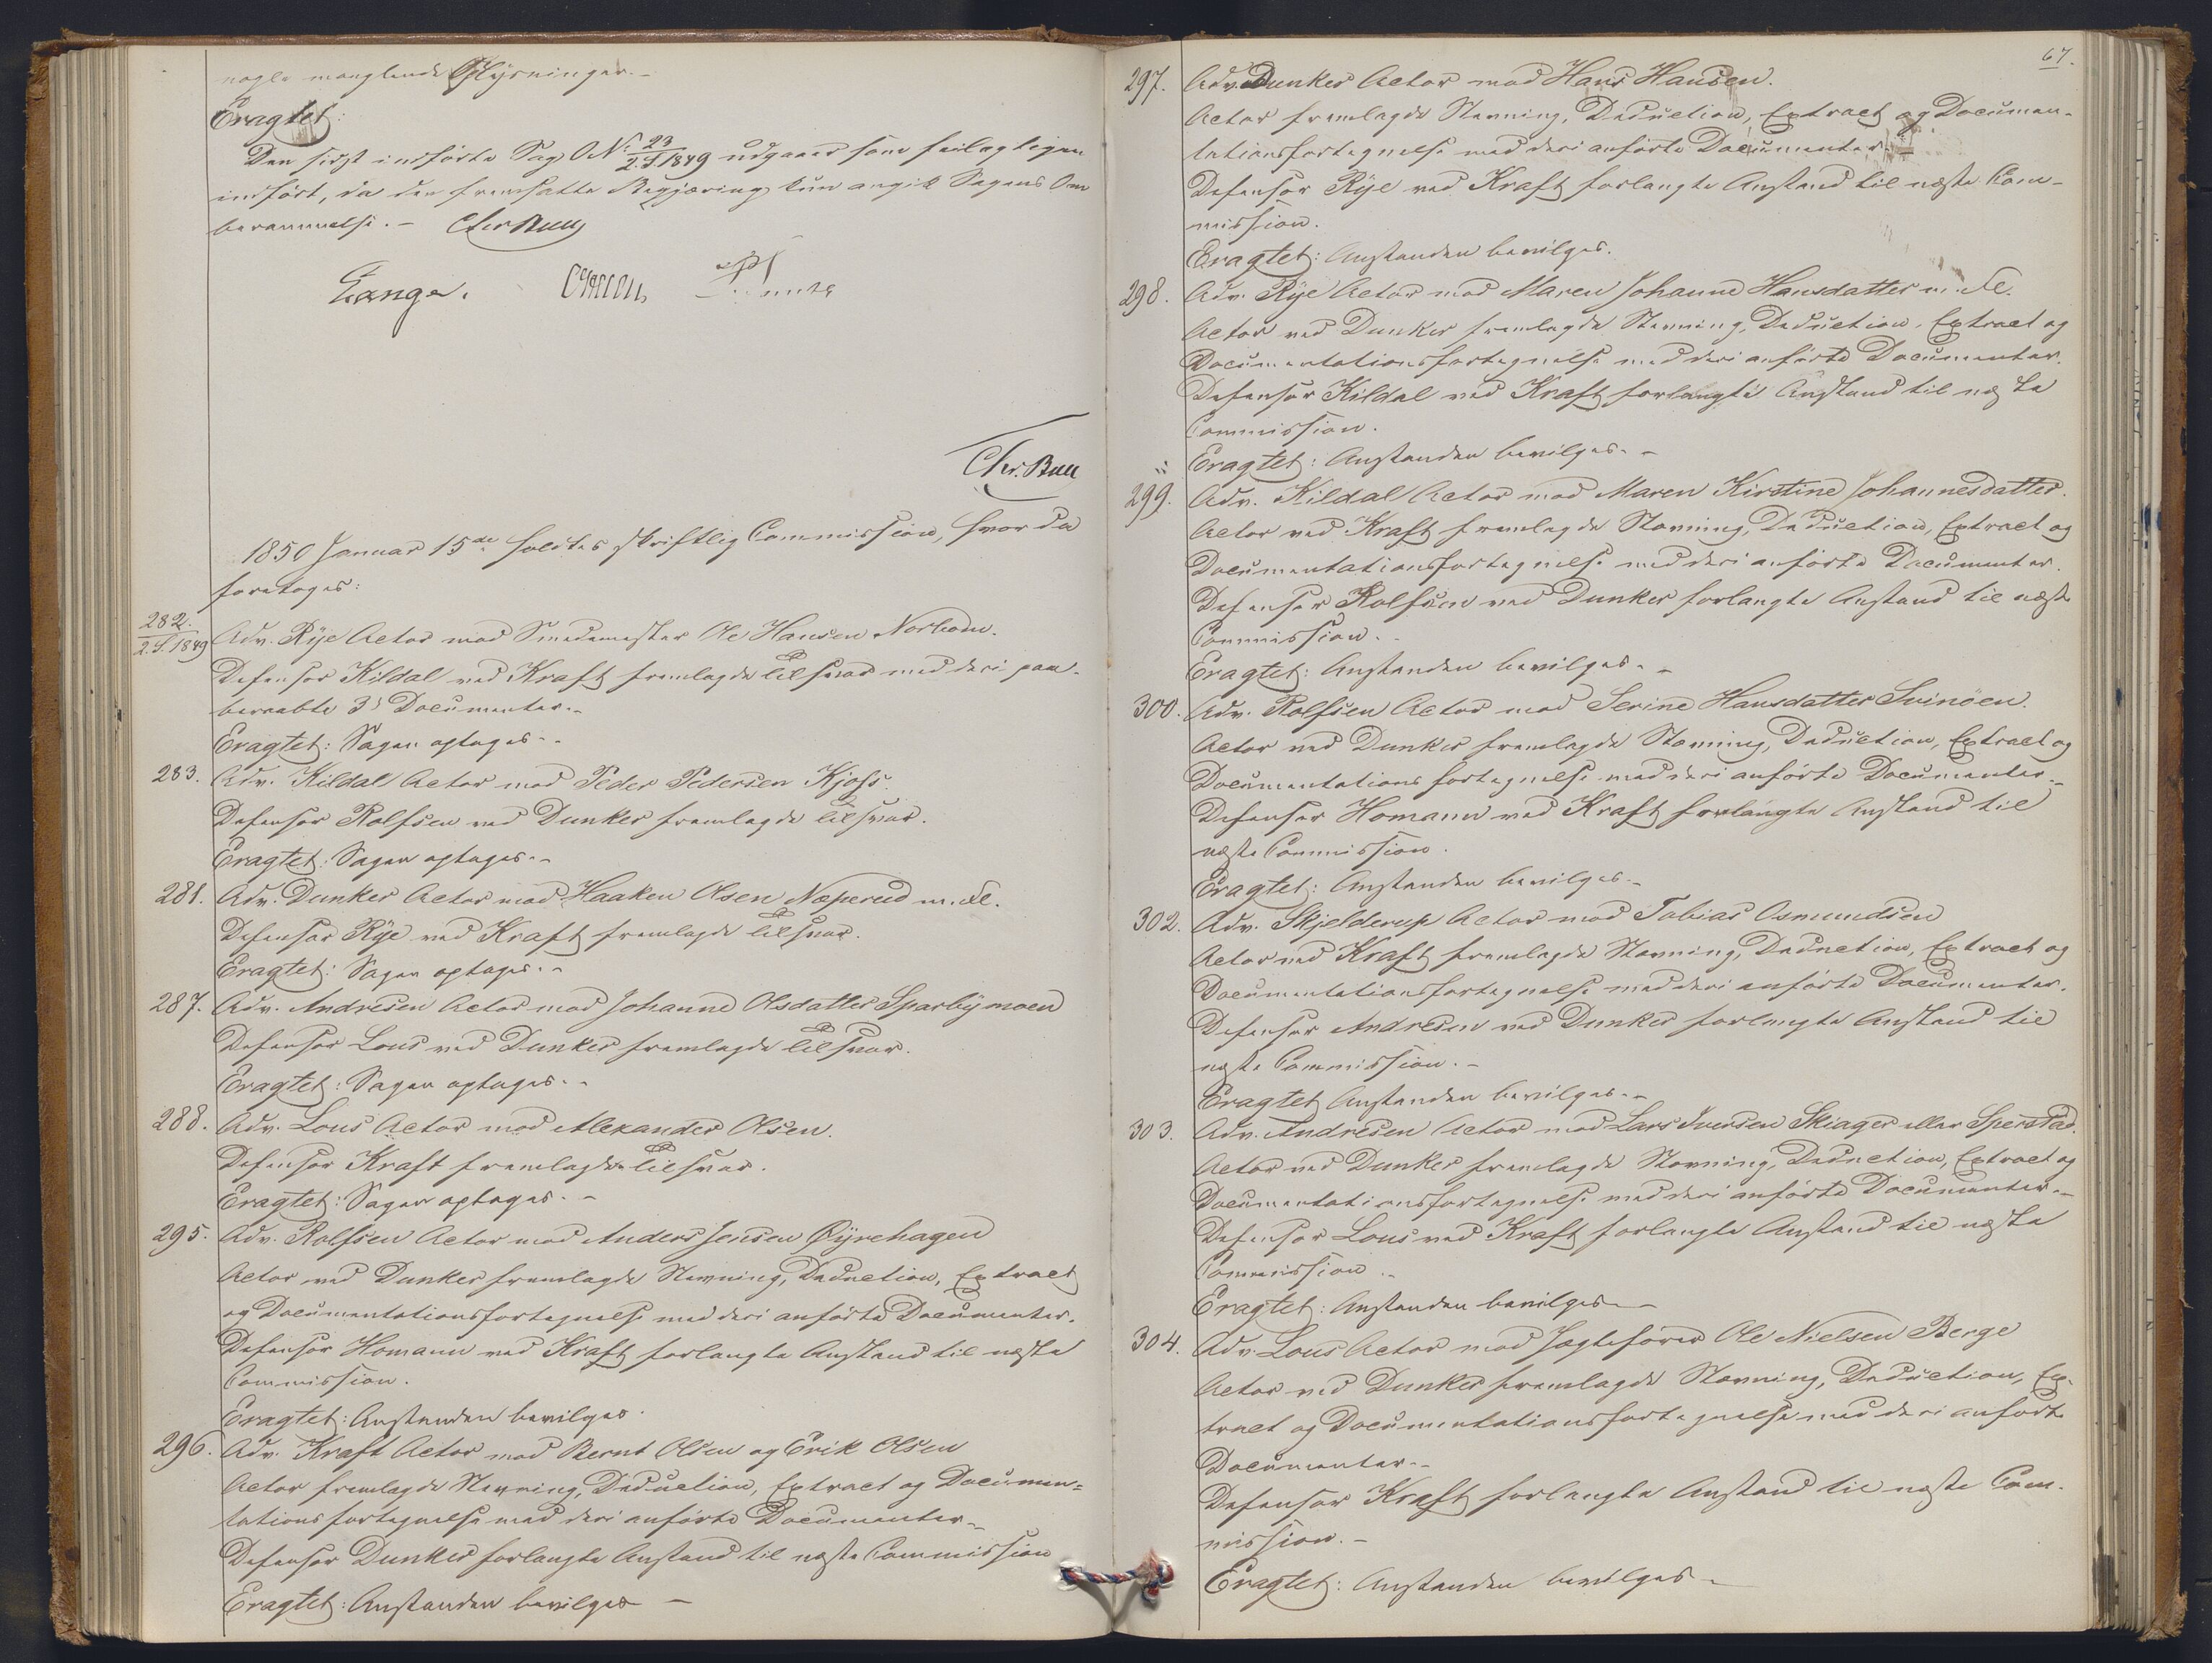 nogle manglende Oplysninger.-
Eragtet:
Den sidst indførte Sag O No 23/2.S.1849 udgaaer som feilagtigen
indført, da den fremsatte Begjæring kun angik Sagens Om
berammelse.- Chr Bull
Lange.
Chr. Bull
1850 Januar 15de holdtes skriftlig Commission, hvor da
foretoges:
282.
2.S.1849
Adv. Rye Actor mod Smedemester Ole Hansen Norbom.
Defensor Kildal ved Kraft fremlagde Tilsvar med deri paa-
beraabte 3 Documenter.-
Eragtet: Sagen optages.-
283. Adv. Kildal Actor mod Peder Pedersen Kjoss.
Defensor Rolfsen ved Dunker fremlagde Tilsvar.
Eragtet: Sagen optages.-
281. Adv. Dunker Actor mod Haaken Olsen Næperud m. Fl.
Defensor Rye ved Kraft fremlagde Tilsvar.
Eragtet: Sagen optages.-
287. Adv. Andresen Actor mod Johanne Olsdatter Sparbymoen
Defensor Lous ved Dunker fremlagde Tilsvar.
Eragtet: Sagen optages.-
288. Adv. Lous Actor mod Alexander Olsen.
Defensor Kraft fremlagde Tilsvar.
Eragtet: Sagen optages.-
295. Adv. Rolfsen Actor mod Anders Jensen Øyrehagen
Actor ved Dunker fremlagde Stevning, Deduction, Extract
og Documentationsfortegnelse med deri anførte Documenter.
Defensor Homann ved Kraft forlangte Anstand til næste
Commission.
Eragtet: Anstanden bevilges.
296. Adv. Kraft Actor mod Bernt Olsen og Erik Olsen
Actor fremlagde Stevning, Deduction, Extract og Documen=
tationsfortegnelse med deri anførte Documenter.-
Defensor Dunker forlangte Anstand til næste Commission
Eragtet: Anstanden bevilges -
67.
297. Adv. Dunker Actor mod Hans Hansen.
Actor fremlagde Stevning, Deduction, Extract og Documen-
tationsfortegnelse med deri anførte Documenter.-
Defensor Rye ved Kraft forlangte Anstand til næste Com-
mission.
Eragtet: Anstanden bevilges.
298. Adv. Rye Actor mod Maren Johanne Hansdatter m. Fl.
Actor ved Dunker fremlagde Stevning, Deduction, Extract og
Documentationsfortegnelse med deri anførte Documenter.
Defensor Kildal ved Kraft forlangte Anstand til næste
Commission.
Eragtet: Anstanden bevilges.-
299. Adv. Kildal Actor mod Maren Kirstine Johannesdatter.
Actor ved Kraft fremlagde Stevning, Deduction, Extract og
Documentationsfortegnelse med deri anførte Documenter.
Defensor Rolfsen ved Dunker forlangte Anstand til næste
Commission.-
Eragtet: Anstanden bevilges.-
300. Adv. Rolfsen Actor mod Serine Hansdatter Svinöen.
Actor ved Dunker fremlagde Stevning, Deduction, Extract og
Documentationsfortegnelse med deri anførte Documenter.-
Defensor Homann ved Kraft forlangte Anstand til
næste Commission.
Eragtet: Anstanden bevilges.-
302. Adv. Skjelderup Actor mod Tobias Osmundsen
Actor ved Kraft fremlagde Stevning, Deduction, Extract og
Documentationsfortegnelse med deri anførte Documenter.
Defensor Andresen ved Dunker forlangte Anstand til
næste Commission.-
Eragtet Anstanden bevilges.-
303. Adv. Andresen Actor mod Lars Iversen Skiager eller Sperstad.
Actor ved Dunker fremlagde Stevning, Deduction, Extract og
Documentationsfortegnelse med deri anførte Documenter.-
Defensor Lous ved Kraft forlangte Anstand til næste
Commission.-
Eragtet: Anstanden bevilges.-
304. Adv. Lous Actor mod Jagtefører Ole Nielsen Berge
Actor ved Dunker fremlagde Stevning, Deduction, Ex-
tract og Documentationsfortegnelse med deri anførte
Documenter.-
Defensor Kraft forlangte Anstand til næste Com-
mission.-
Eragtet: Anstanden bevilges.-